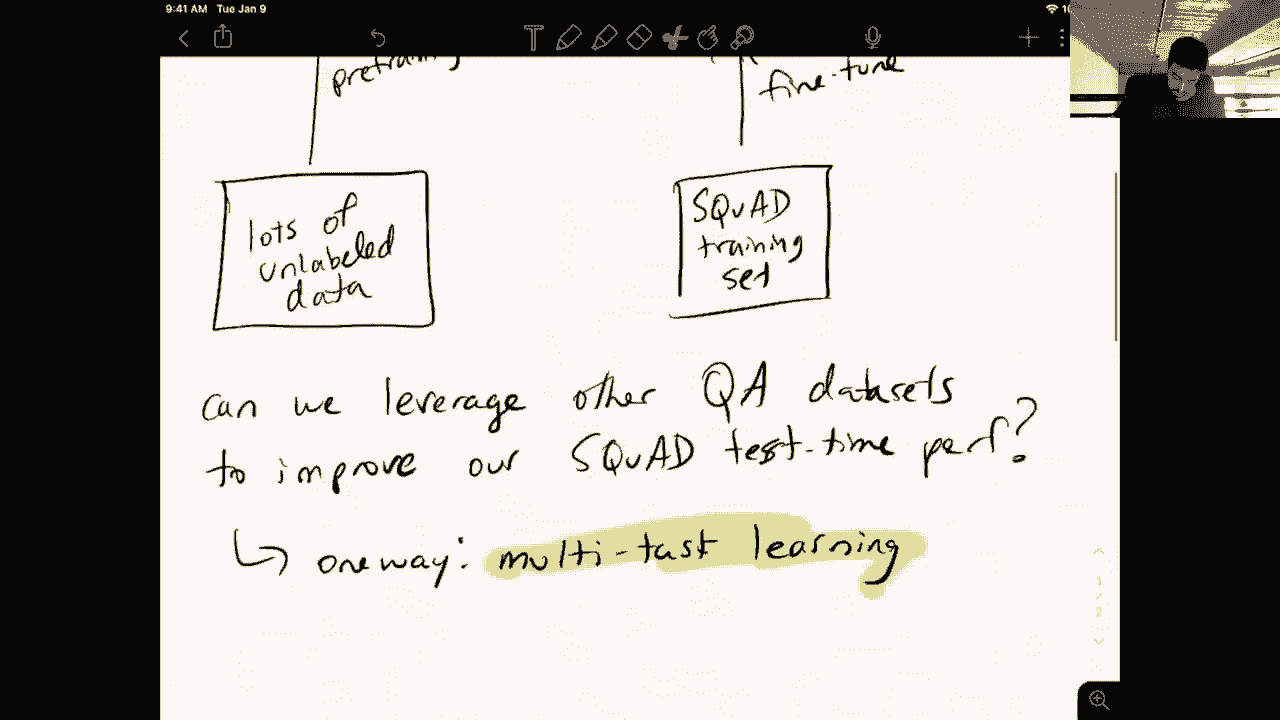 9:41 AM Tue Jan 9
pretraining
fine-tune
lots of
unlabeled
data
SQuAD
training
set
can we leverage other QA datasets
to improve our SQuAD test-time perf?
↳ one way: multi-tast learning
1
/
2